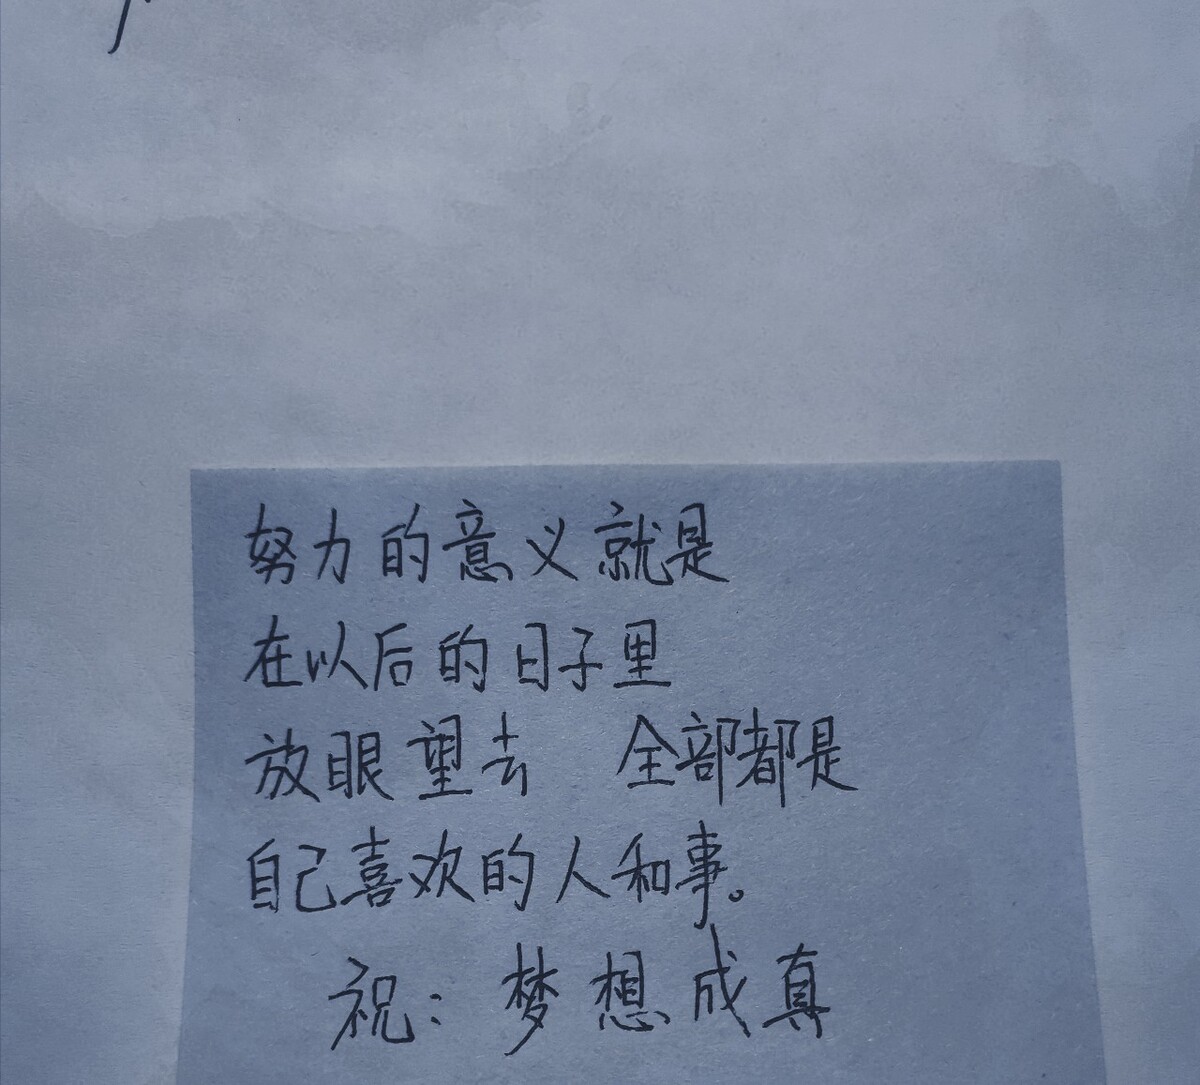 努力的意义就是
在以后的日子里
放眼望去 全部都是
自己喜欢的人和事。
祝：梦想成真